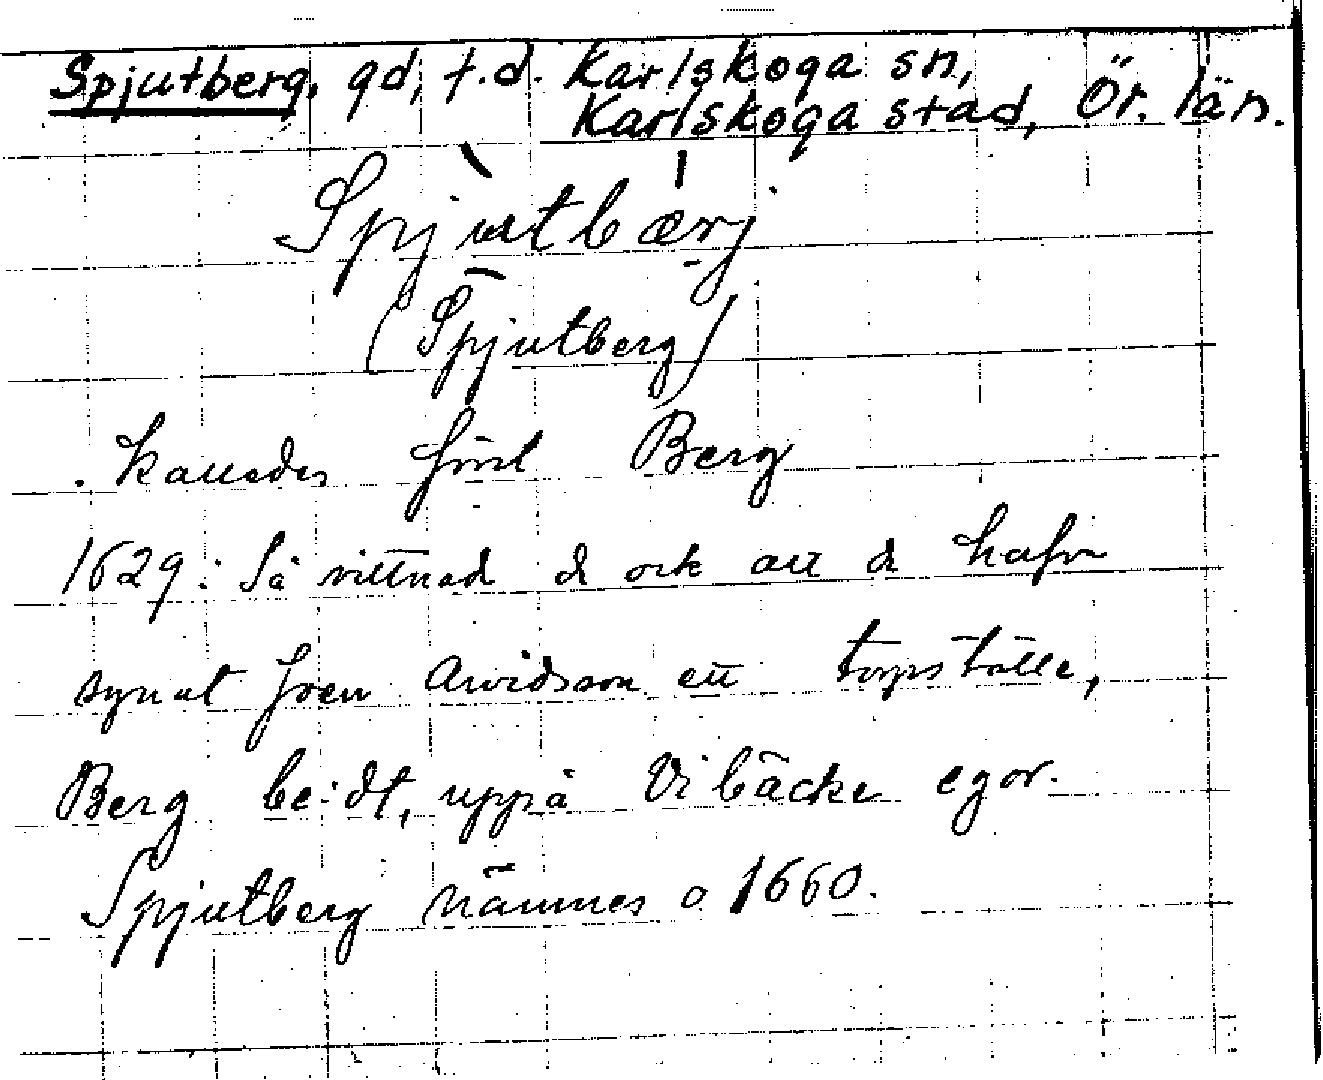 Spjutberg, gd, f.d. Karlskoga sn,
Karlskoga stad, Ör. län.
Spjutbærj
(Spjutberg)
. kallades först Berg
1629: Så vittnad de ock att de hafva
synat Joen Arvidsson ett torpställe,
Berg be:dt, uppå Vibäcke egor.
Spjutberg nämnes o 1660.